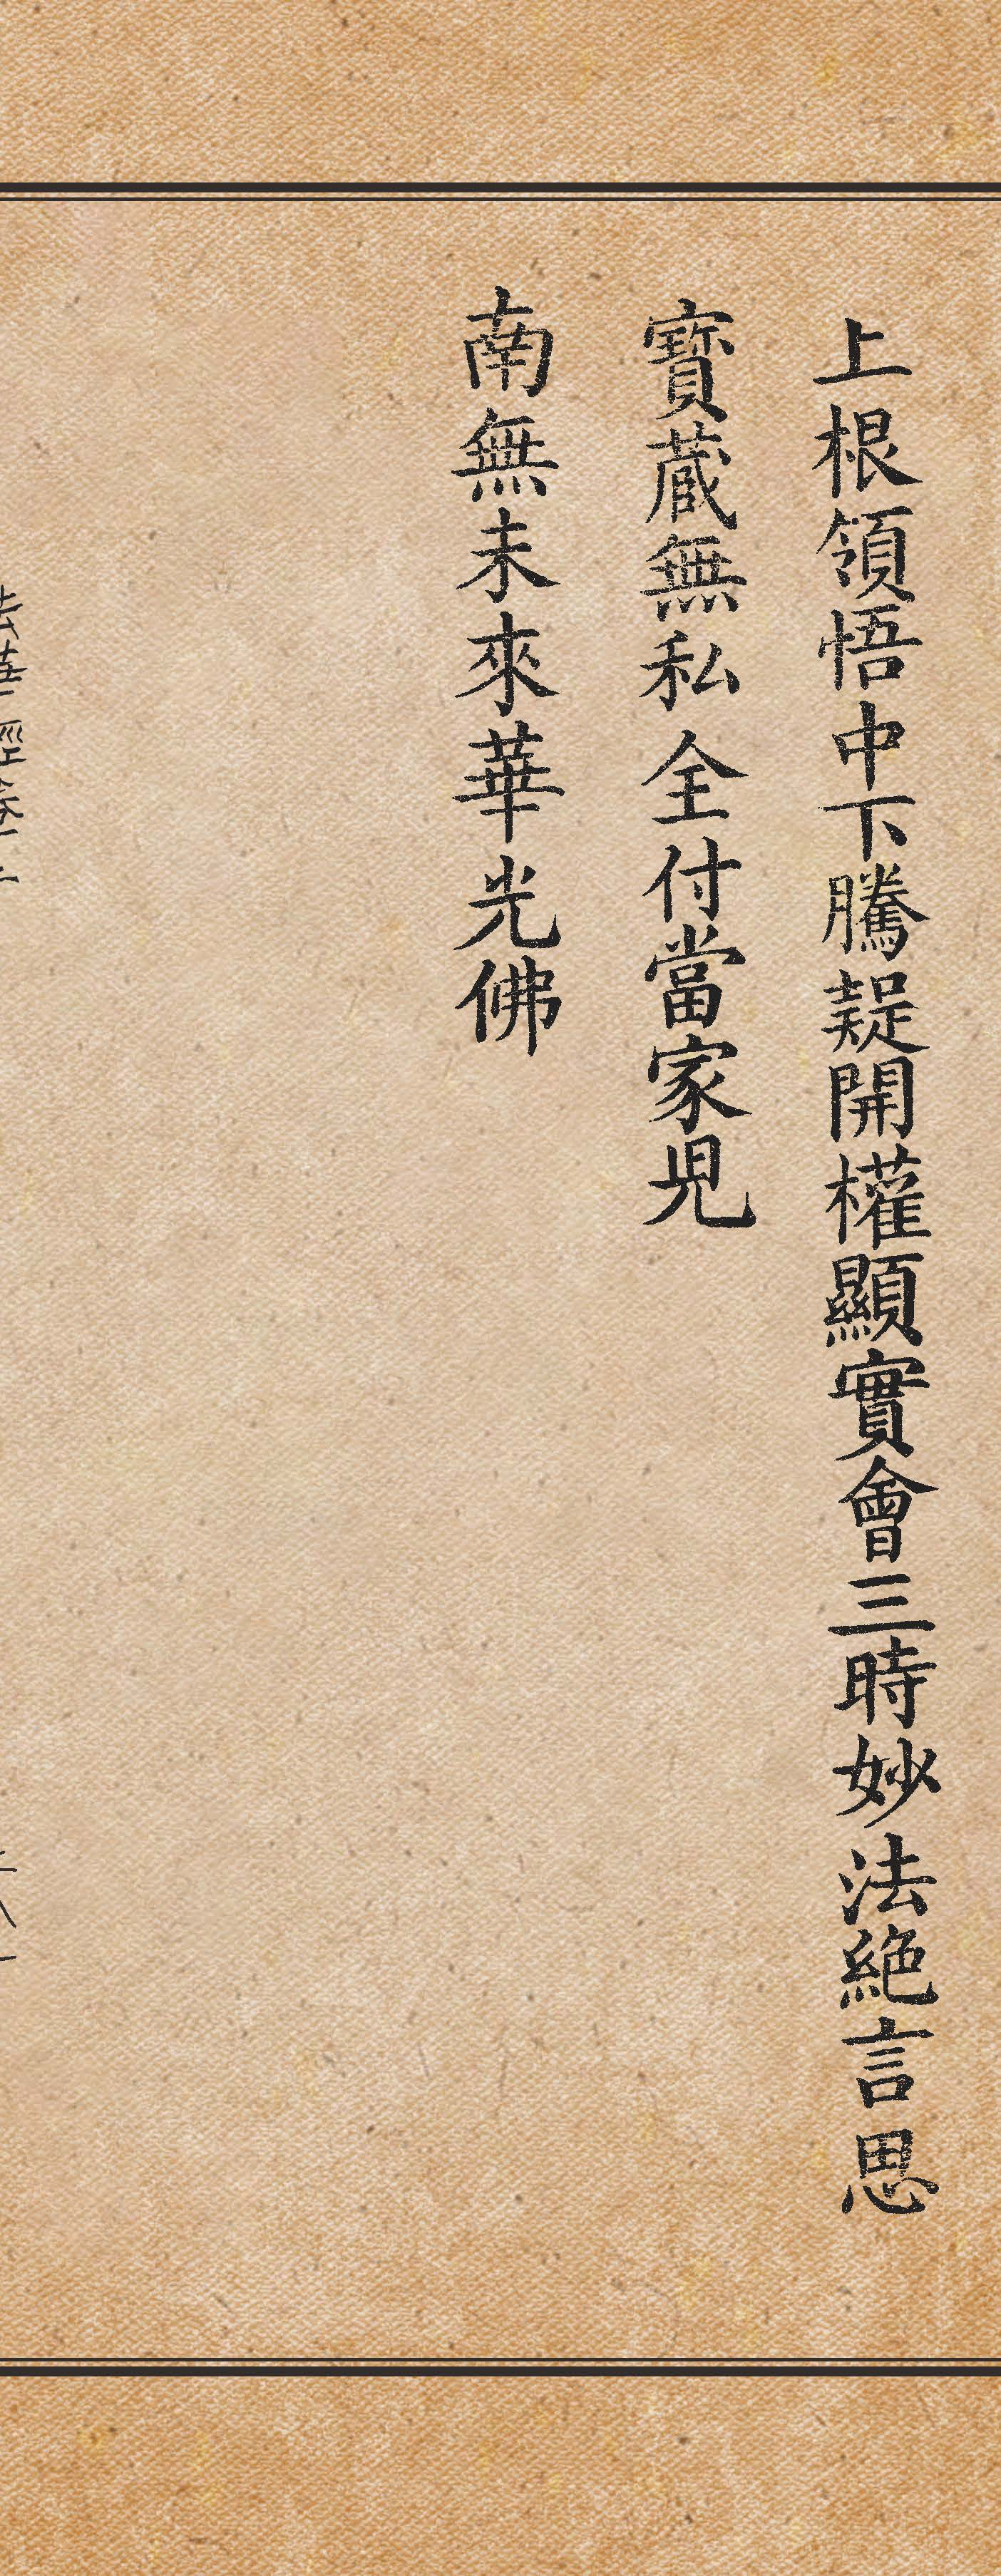 上根領悟中下騰疑開權顯實會三時妙法絕言思
寶蔵無私全付當家児
南無未來華光佛